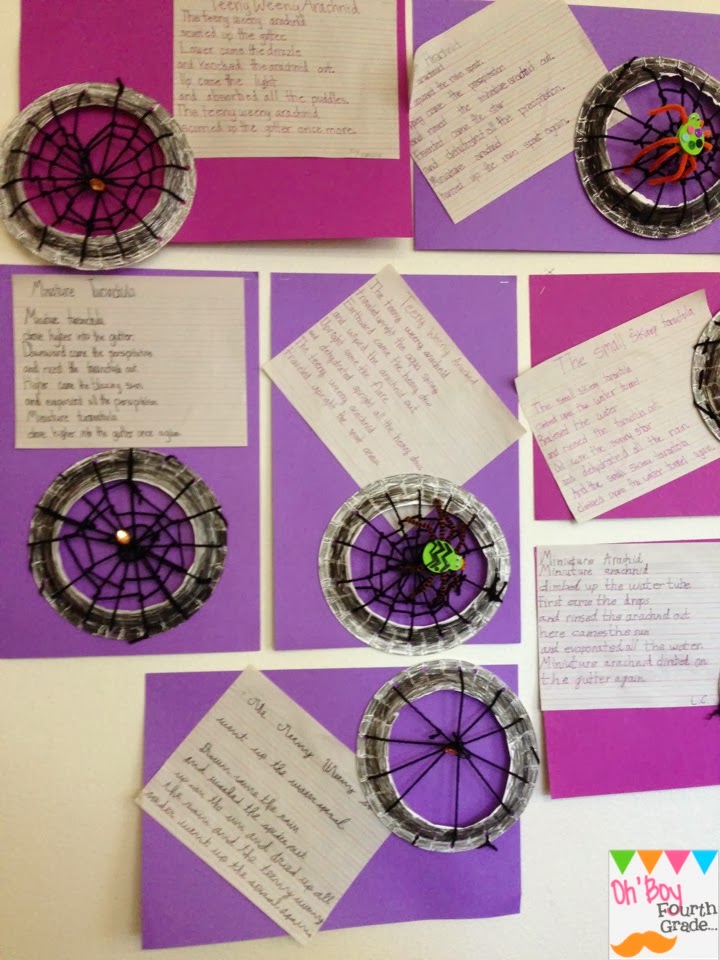 Teeny Weeny Arachnid
The teeny weeny arachnid
scurried up the gutter.
Lower came the drizzle
and knocked the arachnid out.
Up came the light
and absorbed all the puddles.
The teeny weeny arachnid
scurried up the gutter once more.
Arachnid
arachnid
the rain spout.
came the precipitation
and rinsed the miniature arachnid out.
came the star
and dehydrated all the precipitation.
Miniature arachnid
up the rain spout again.
Miniature Tarantula
tarantula
higher into the gutter.
Downward came the
and rinsed the tarantula out.
Higher came the blazing sun
and evaporated all the
Miniature
higher into the gutter once again.
Teeny Weeny Arachnid
The teeny weeny arachnid
traveled upright the
Earthward came the heavy dew
and wiped the arachnid out
Upright came the flare
and dehydrated upright all the heavy dew
The teeny weeny arachnid
traveled upright the spout again
The Small Skinny tarantula
The small skinny tarantula
climbed upon the water tunnel
the water
and rinsed the tarantula out
came the star
and dehydrated all the rain
And the small skinny tarantula
climbed upon the water tunnel again.
Miniature Arachid
Miniature arachnid
climbed up the water tube
First came the drops
and rinsed the arachnid out
here comes the sun
and evaporated all the water
Miniuture arachnid climbed on
the gutter again
The Teeny Weeny
went up the water spiral
Down came the rain
and washed the spider out
up came the sun and dried up all
the rain and the teeny weeny
spider went up the spiral again
Oh' Boy
Fourth
Grade...